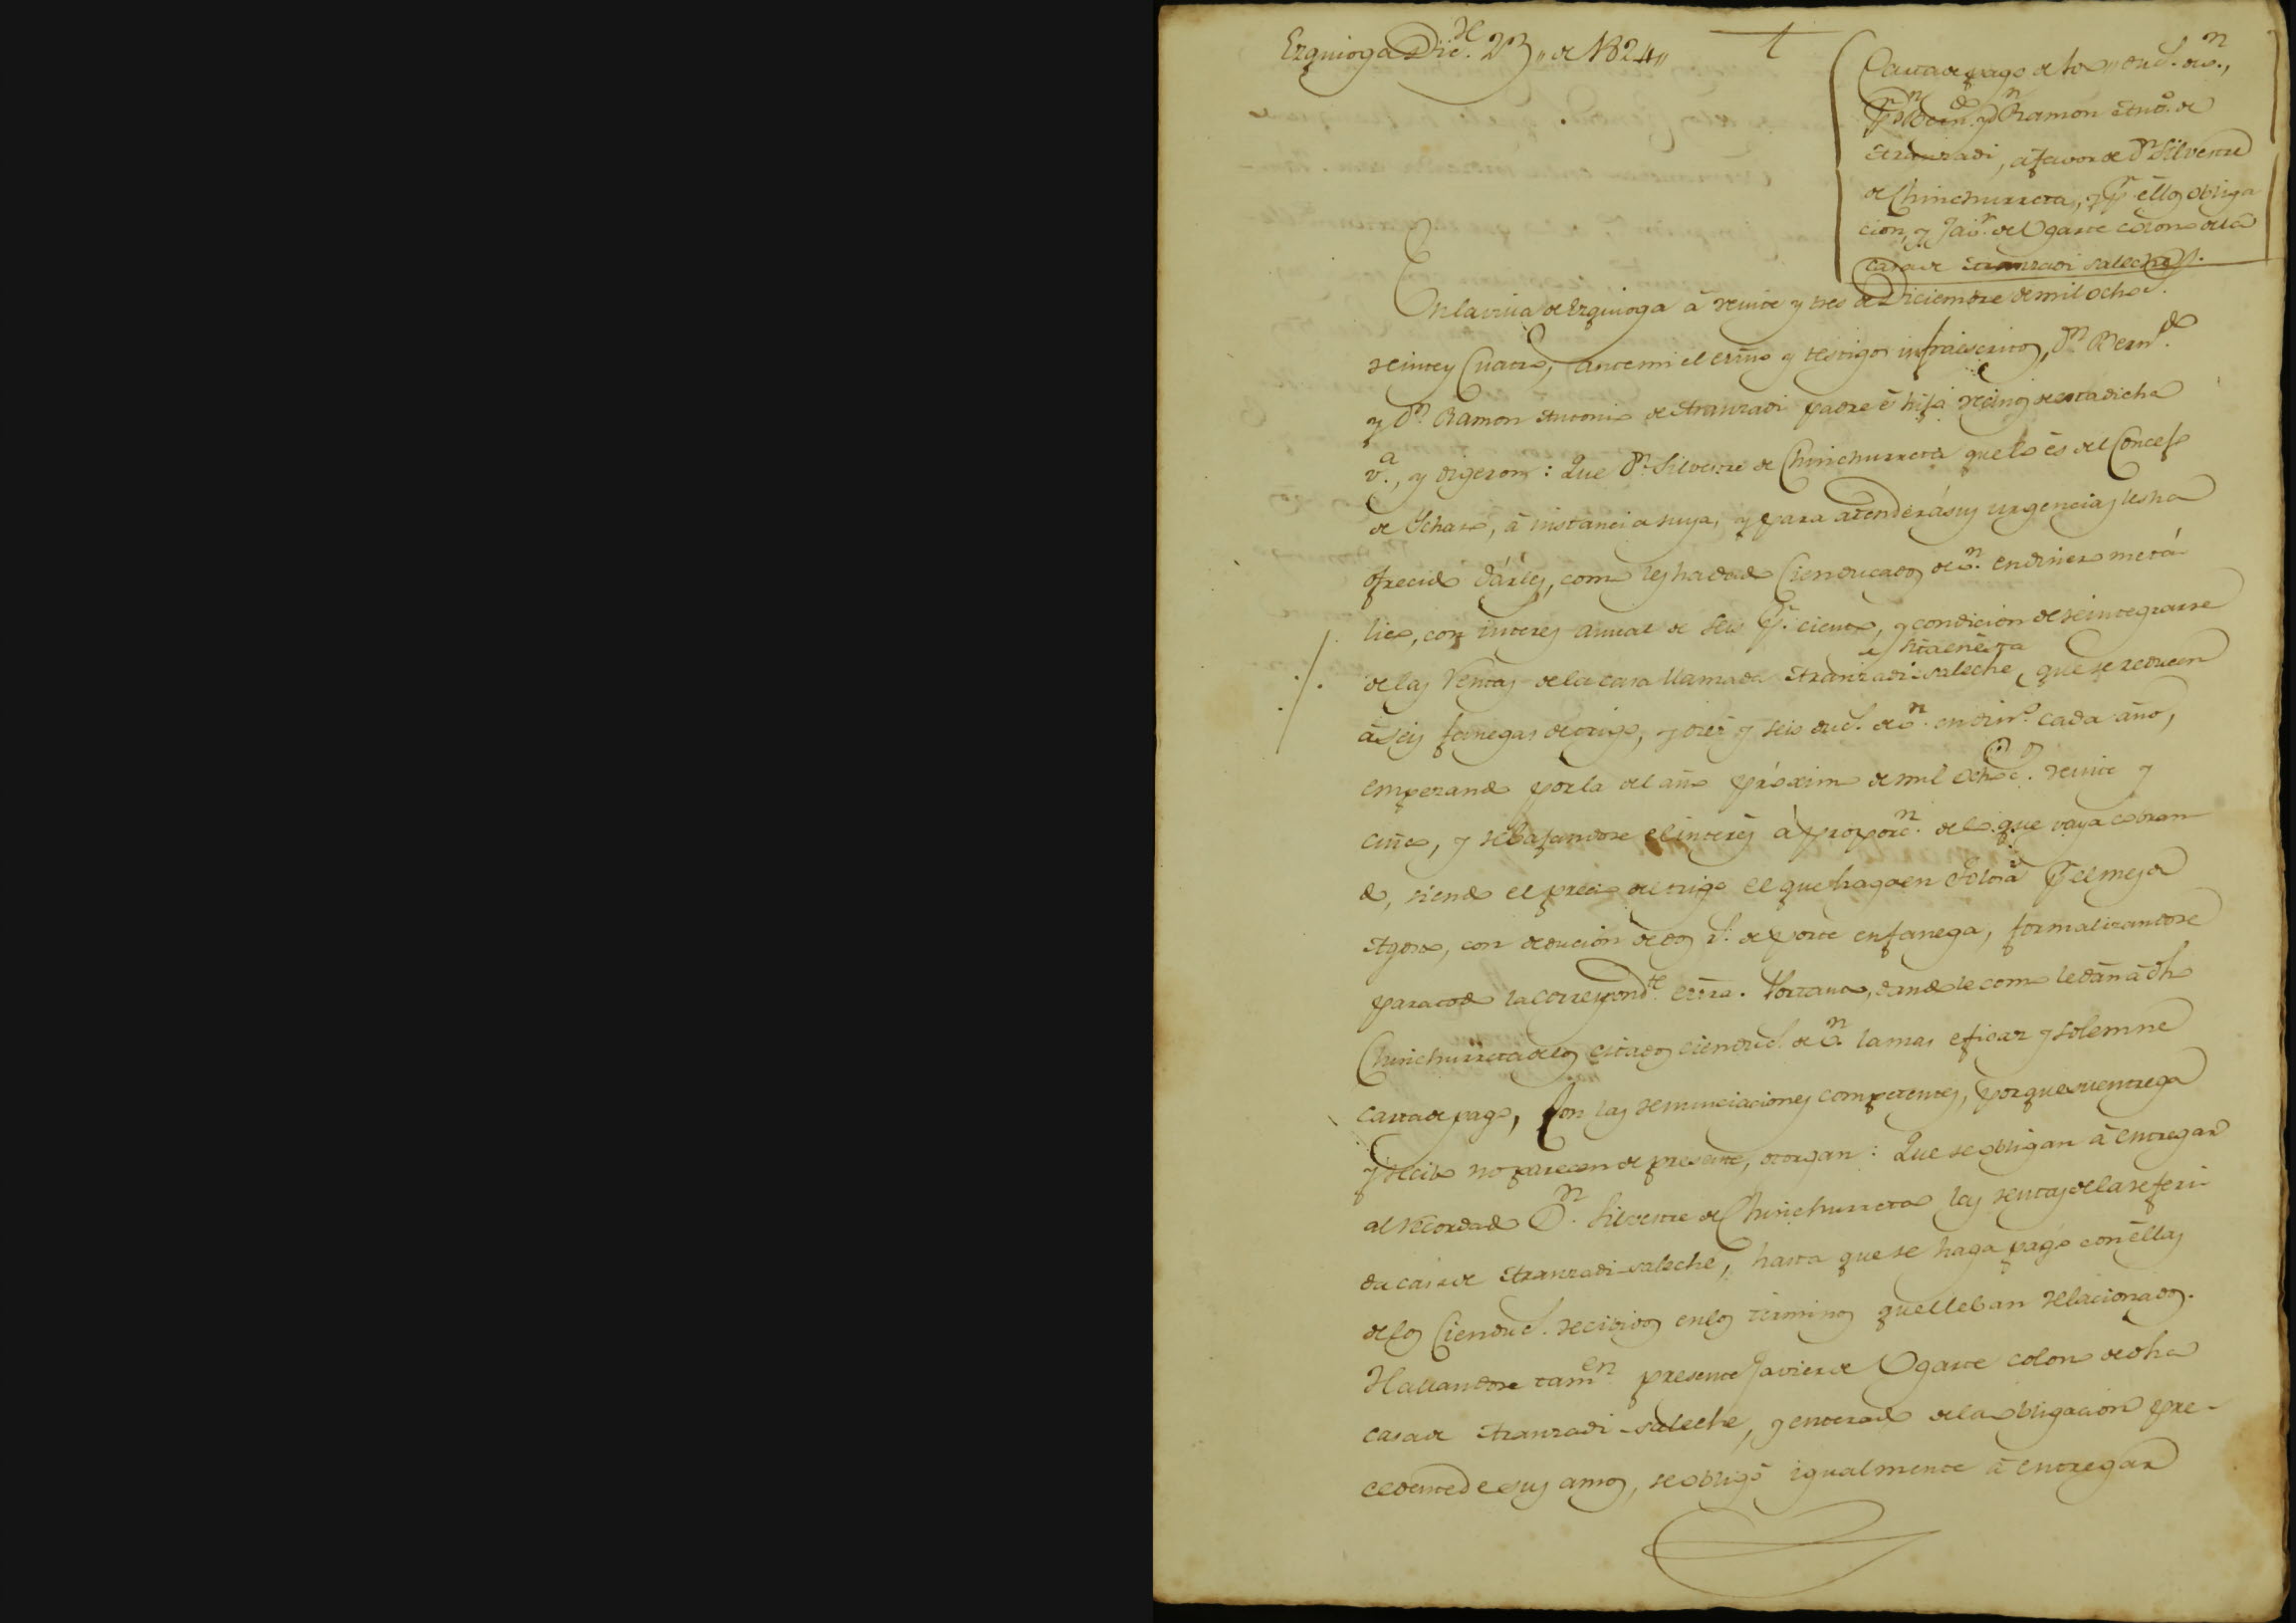 Ezquioga Dic.re 23,, de 1824,,
Carta de pago de 100,, duc.s de v.n,
p.r D.n Bern.do y D.n Ramon Ant.o de
Aranzadi, á favor de D.n Silvestre
de Chinchurreta, y p.r éllos obliga
cion, y Jav.r de Ogarte colono de la
casa de Aranzadi saleche.
En la villa de Ezquioga á veinte y tres de Diciembre de mil ochoc.s
veinte y Cuatro, ante mi el esñno y testigos infraescritos, D.n Bern.do
y D.n Ramon Antonio de Aranzadi padre é hijo vecinos de esta dicha
v.a, y digeron: Que D.n Silvestre de Chinchurreta que lo és del Concejo
de Ychaso, á instancia suya, y para atender á sus urgencias les ha
ofrecido dárles, como les ha dado Cien ducados de v.n en dinero metá
lico, con interes anual de seis p.r ciento, y condicion de reintegrarse
sita en ésta
de las Rentas de la casa llamada Aranzadi-saleche, que se reducen
á seis fanegas de trigo, y diéz y seis duc.s de v.n en din.o cada año,
empezando por la del año próximo de mil ochoc.s veinte y
cinco, y rebajandose el interés á proporc.n de lo que vaya cobran
do, siendo el precio del trigo el que haga en Tolosa p.r el mes de
Agosto, con deducion de dos r.s de porte en fanega, formalizandose
para todo la correspond.te esñra. Portanto, dando le como le dán á dho
Chinchurreta de los citados cien duc.s de v.n la mas eficaz y solemne
carta de pago, con las renunciaciones competentes, porque su entrega
y recibo no parecen de presente, otorgan: Que se obligan á entregar
al recordado D.n Silvestre de Chinchurreta las rentas de la referi
da casa de Aranzadi-saleche, hasta que se haga pago con éllas
de los Cien duc.s recibidos en los términos que lleban relacionados.
Hallandose tam.en presente Javier de Ogarte colono de dha
casa de Aranzadi-saleche, y enterado de la obligacion pre-
cedente de sus amos, se obligó igualmente á entregar